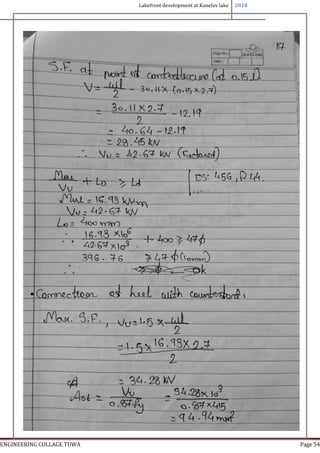 Lakefront development at Kanelav lake 2018
Page No.
Date
17
S.F. at point of contraflexure (at 0.15 l)
V = wl/2 - 30.11 x (0.15 x 2.7)
= 30.11 x 2.7 / 2 - 12.19
= 40.64 - 12.19
= 28.45 kN
∴ Vu = 42.67 kN (Factored)
Mul / Vu + Lo ≥ Ld
IS: 456, P 44.
Mul = 16.93 kN.m
Vu = 42.67 kN
Lo = 400 mm
∴ 16.93 x10⁶ / 42.67 x10³ + 400 ≥ 47ϕ
396.76 ≥ 47ϕ (10mm)
∴ ok
• Connection of heel with counterfort:
Max. S.F., Vu = 1.5 x wl/2
= 1.5 x 16.93 x 2.7 / 2
= 34.28 kN
Ast = Vu / 0.87fy = 34.28 x 10³ / 0.87 x 415
= 94.94 mm²
ENGINEERING COLLAGE TUWA Page 54